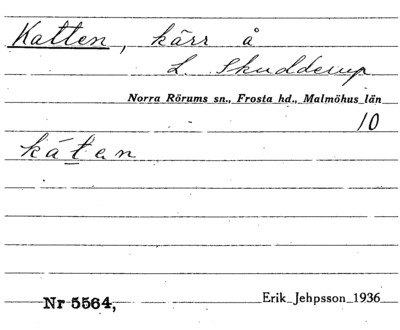 Katten, kärr å
L. Skudderup
Norra Rörums sn., Frosta hd., Malmöhus län
10
käten
Nr 5564,
Erik Jehpsson 1936